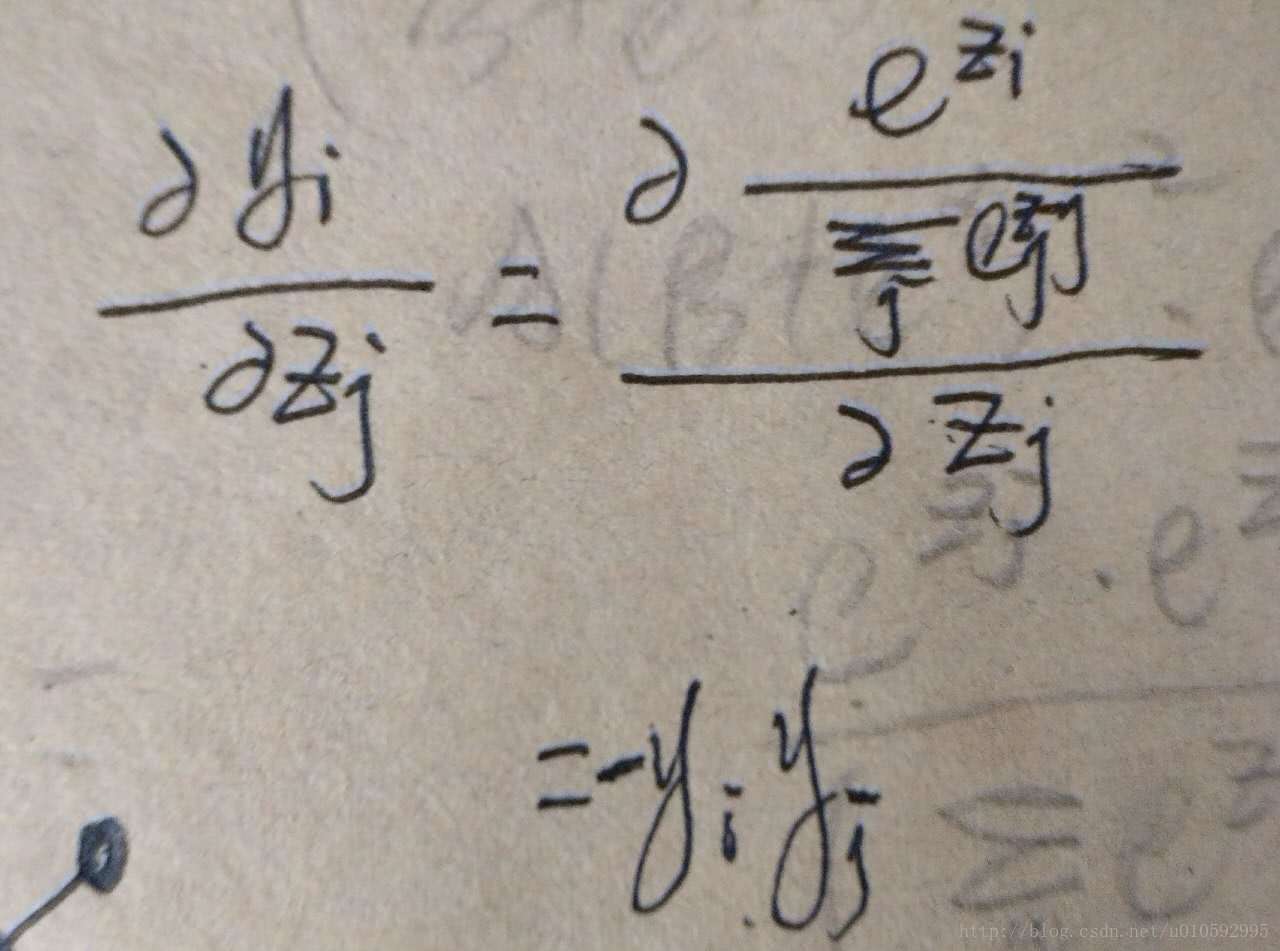 ∂y_i / ∂z_j = ∂ (e^{z_i} / Σ_j e^{z_j}) / ∂z_j
= -y_i y_j
http://blog.csdn.net/u010592995